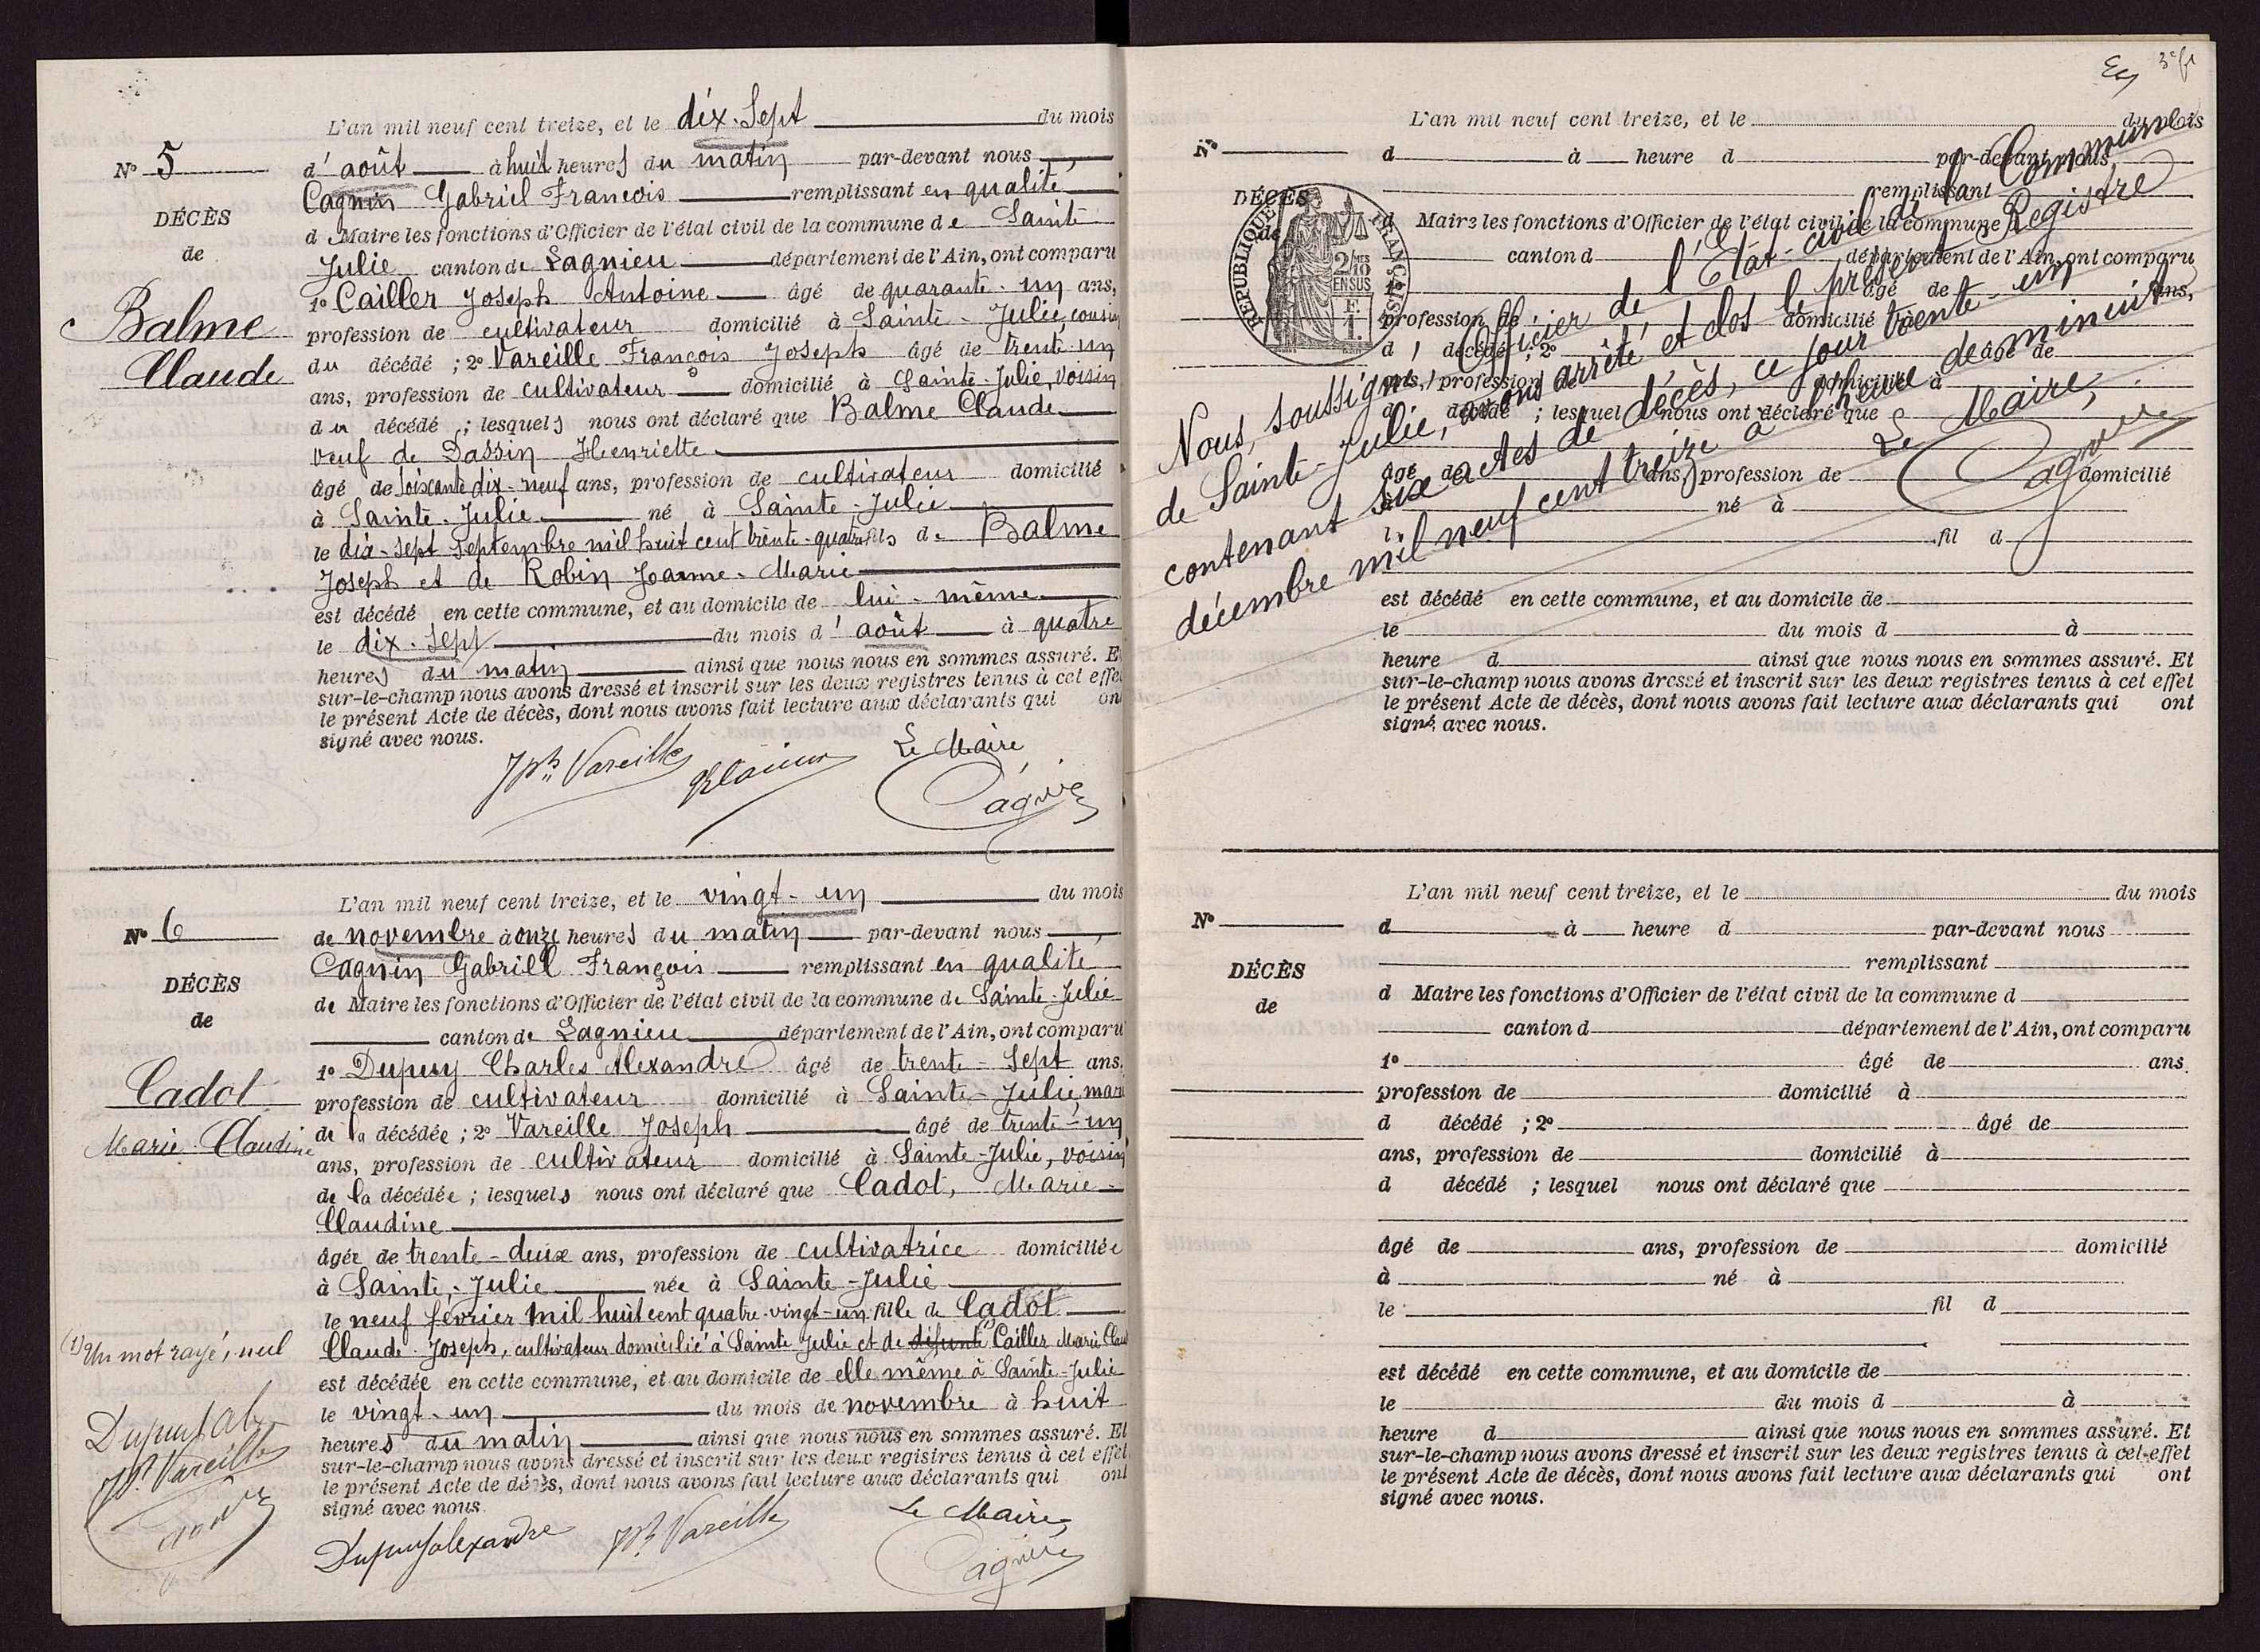 L'an mil neuf cent treize, et le dix-Sept du mois
N° 5
d'août à huit heures du matin par-devant nous,
Cagnin Gabriel François remplissant en qualité
DÉCÈS
de
d Maire les fonctions d'Officier de l'état civil de la commune de Sainte
Julie canton de Lagnieu département de l'Ain, ont comparu
1° Cailler Joseph Antoine âgé de quarante-un ans,
Balme
Claude
profession de cultivateur domicilié à Sainte-Julie, cousin
du décédé ; 2° Vareille François Joseph âgé de trente-un
ans, profession de cultivateur domicilié à Sainte-Julie, voisin
du décédé ; lesquels nous ont déclaré que Balme Claude
veuf de Dassin Henriette
âgé de soixante dix-neuf ans, profession de cultivateur domicilié
à Sainte-Julie né à Sainte-Julie
le dix-sept Septembre mil huit cent trente-quatre fils de Balme
Joseph et de Robin Jeanne-Marie
est décédé en cette commune, et au domicile de lui-même
le dix-sept du mois d'août à quatre
heures du matin ainsi que nous nous en sommes assuré. Et
sur-le-champ nous avons dressé et inscrit sur les deux registres tenus à cet effet
le présent Acte de décès, dont nous avons fait lecture aux déclarants qui ont
signé avec nous.
Jph Vareille
Le Maire
Cagnin
L'an mil neuf cent treize, et le vingt-un du mois
N° 6
de novembre à onze heures du matin par-devant nous,
Cagnin Gabriel François remplissant en qualité
DÉCÈS
de
de Maire les fonctions d'Officier de l'état civil de la commune de Sainte-Julie
canton de Lagnieu département de l'Ain, ont comparu
1° Dupuy Charles Alexandre âgé de trente-sept ans,
Cadot
Marie-Claudine
profession de cultivateur domicilié à Sainte-Julie, mari
de la décédée ; 2° Vareille Joseph âgé de trente-un
ans, profession de cultivateur domicilié à Sainte-Julie, voisin
de la décédée ; lesquels nous ont déclaré que Cadot, Marie-
Claudine
âgée de trente-deux ans, profession de cultivatrice domiciliée
à Sainte-Julie née à Sainte-Julie
le neuf février mil huit cent quatre-vingt-un fille de Cadot
(1) Un mot rayé, nul
Claude-Joseph, cultivateur domicilié à Sainte-Julie et de défunte (1) Cailler Marie Clau
est décédée en cette commune, et au domicile de elle même à Sainte-Julie
le vingt-un du mois de novembre à huit
heures du matin ainsi que nous nous en sommes assuré. Et
sur-le-champ nous avons dressé et inscrit sur les deux registres tenus à cet effet
le présent Acte de décès, dont nous avons fait lecture aux déclarants qui ont
signé avec nous.
Dupuy Alx
Jph Vareille
Cagnin
Dupuy alexandre Jph Vareille
Le Maire,
Cagnin
L'an mil neuf cent treize, et le du mois
N°
d à heure d par-devant nous,
remplissant
DÉCÈS
de
d Maire les fonctions d'Officier de l'état civil de la commune d
canton d département de l'Ain, ont comparu
1° âgé de ans,
profession de domicilié à
d décédé ; 2° âgé de
ans, profession de domicilié à
d décédé ; lesquel nous ont déclaré que
âgé de ans, profession de domicilié
à né à
le fil d
est décédé en cette commune, et au domicile de
le du mois d à
heure d ainsi que nous nous en sommes assuré. Et
sur-le-champ nous avons dressé et inscrit sur les deux registres tenus à cet effet
le présent Acte de décès, dont nous avons fait lecture aux déclarants qui ont
signé avec nous.
RÉPUBLIQUE FRANÇAISE
2/10 EN SUS
F. 1.
Nous, soussigné, Officier de l'État-civil de la Commune
de Sainte-Julie, avons arrêté et clos le présent Registre
contenant six actes de décès, ce jour trente-un
décembre mil neuf cent treize à l'heure de minuit
Le Maire,
Cagnin
L'an mil neuf cent treize, et le du mois
N°
d à heure d par-devant nous
remplissant
DÉCÈS
de
d Maire les fonctions d'Officier de l'état civil de la commune d
canton d département de l'Ain, ont comparu
1° âgé de ans.
profession de domicilié à
d décédé ; 2° âgé de
ans, profession de domicilié à
d décédé ; lesquel nous ont déclaré que
âgé de ans, profession de domicilié
à né à
le fil d
est décédé en cette commune, et au domicile de
le du mois d à
heure d ainsi que nous nous en sommes assuré. Et
sur-le-champ nous avons dressé et inscrit sur les deux registres tenus à cet effet
le présent Acte de décès, dont nous avons fait lecture aux déclarants qui ont
signé avec nous.